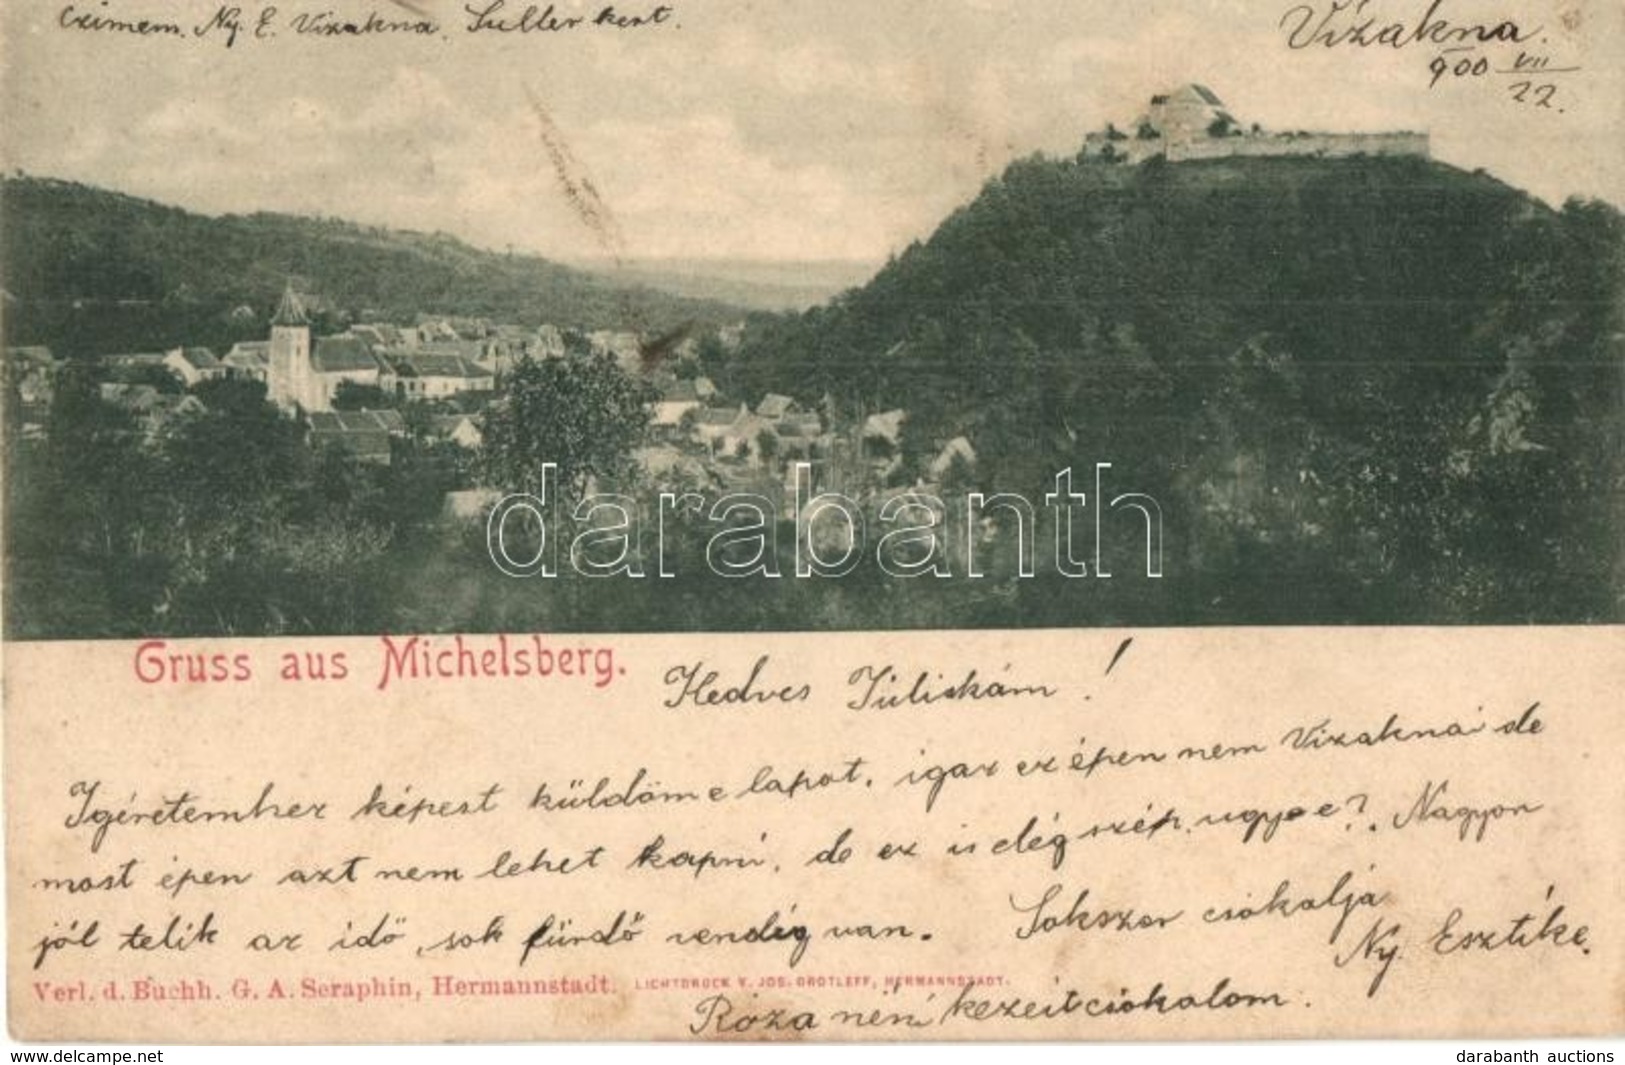 Czimem. Ny. E. Vizakna. Suller kert.
Vízakna.
900 VII/22.
darabanth
Gruss aus Michelsberg.
Hedves Juliskám!
Igéretemhez képest küldöm e lapot, igaz ez épen nem Vizaknai de
most épen azt nem lehet kapni, de ez is elég szép, ugye e? Nagyon
jól telik az idő, sok fürdő vendég van.
Sokszor csókolja
Ny. Esztike.
Verl. d. Buchh. G. A. Seraphin, Hermannstadt. LICHTDRUCK V. JOS. DROTLEFF, HERMANNSTADT.
Róza néni kezeit csókolom.
www.delcampe.net
darabanth auctions